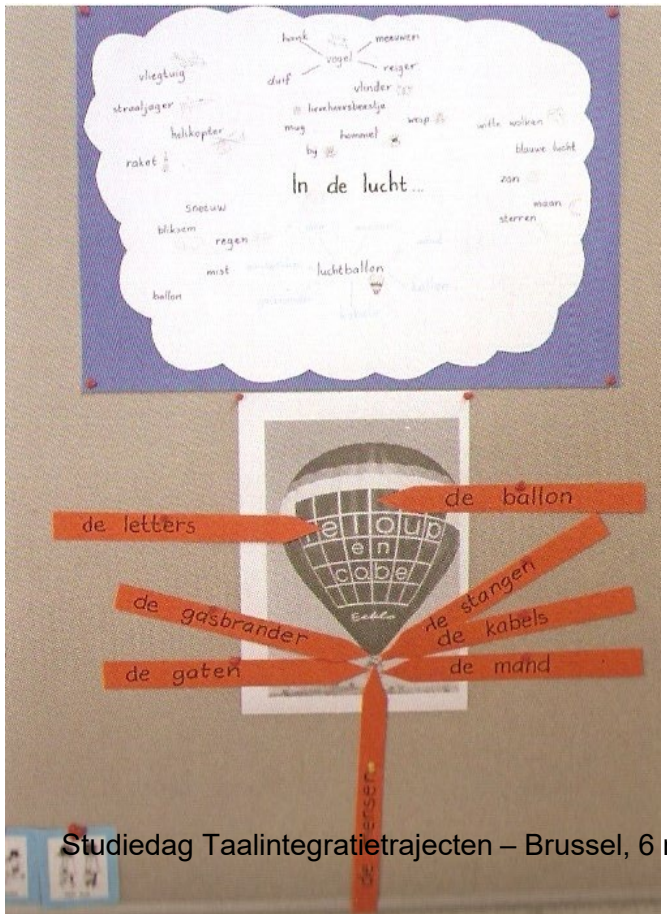 havik
meeuwen
vogel
duif
reiger
vliegtuig
vlinder
straaljager
lieveheersbeestje
wesp
witte wolken
helikopter
mug
hommel
blauwe lucht
raket
bij
zon
In de lucht...
sneeuw
maan
sterren
bliksem
regen
mist
luchtballon
ballon
de ballon
de letters
eloup
en
cobe
Eeklo
de stangen
de gasbrander
de kabels
de gaten
de mand
de mensen
Studiedag Taalintegratietrajecten – Brussel, 6